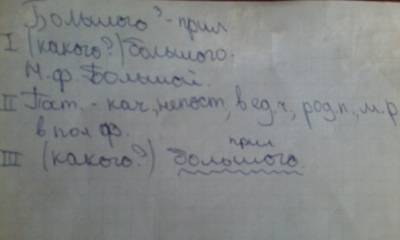 Большого³ - прил
I (какого?) большого.
Н.ф. Большой.
II Пост. - кач., непост., в ед.ч., род.п., м.р
в пол ф.
III (какого?) большого.
прил